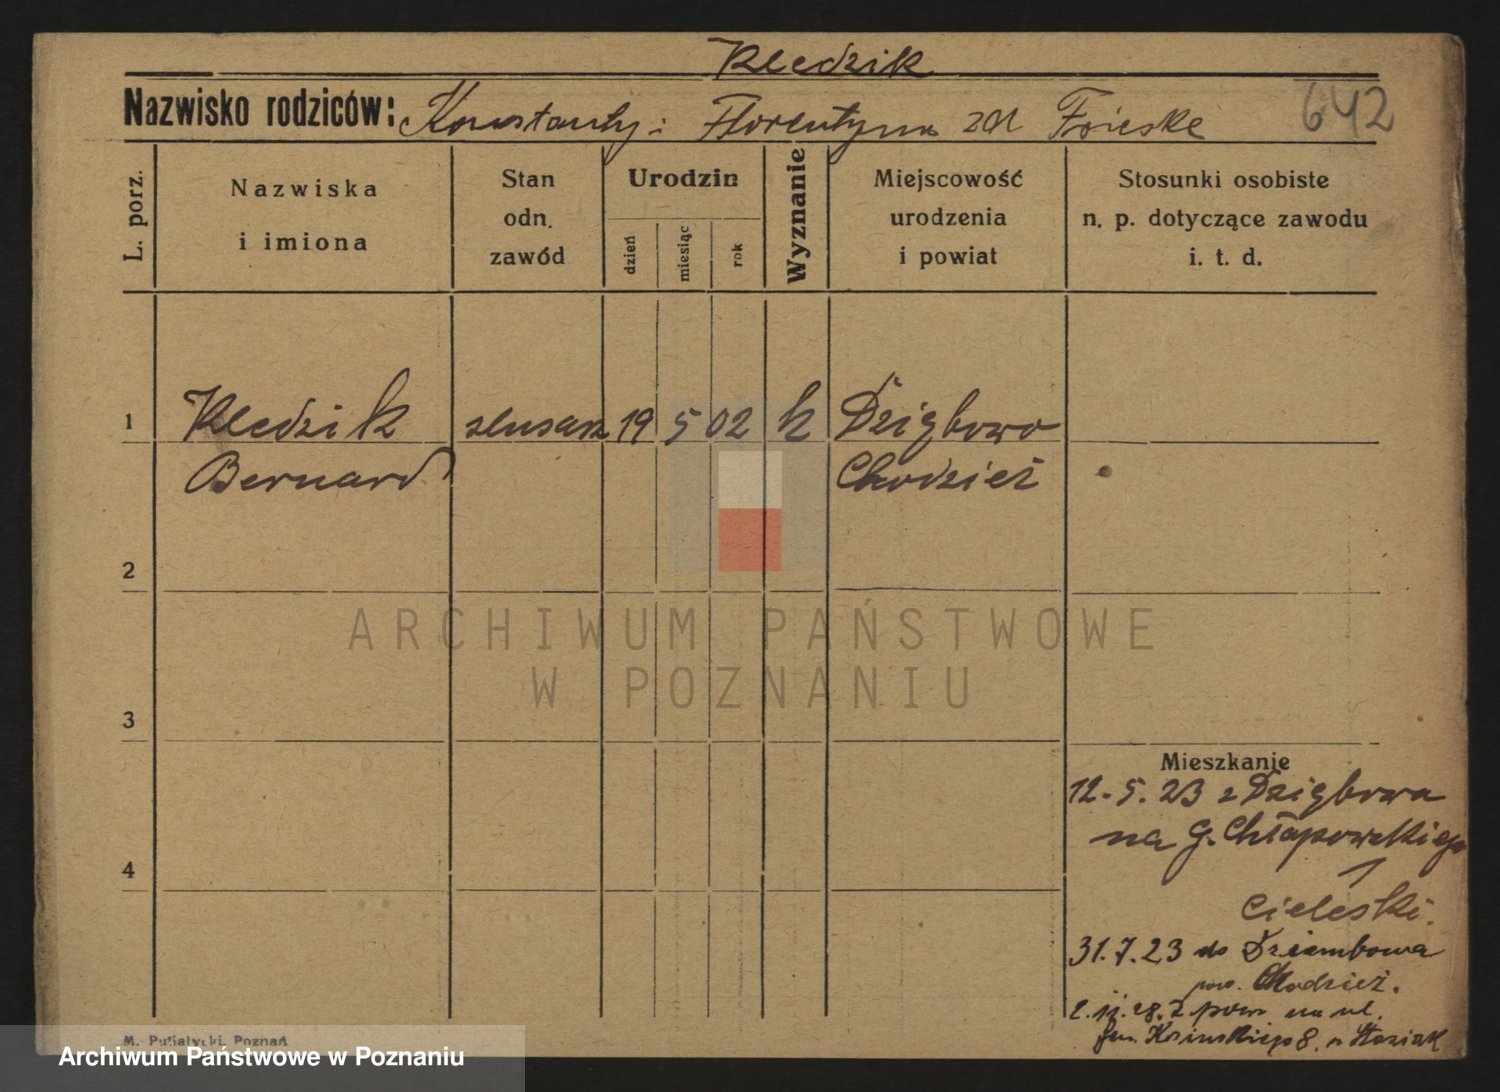 Kledzik
Nazwisko rodziców: Konstanty i Florentyna zd Frieske
642
L. porz.
Nazwiska
i imiona
Stan
odn.
zawód
Urodzin
dzień
miesiąc
rok
Wyznanie
Miejscowość
urodzenia
i powiat
Stosunki osobiste
n. p. dotyczące zawodu
i. t. d.
1 Kledzik ślusarz 19 5 02 k Dzigbowo
Bernard Chodzież
2
ARCHIWUM PAŃSTWOWE
W POZNANIU
3
Mieszkanie
12.5.23 z Dzigbowa
na G. Chłapowskiego
4
1
Cieleski.
31.7.23 do Dziembowa
pow. Chodzież.
2.11.28. z pow na ul.
Gen. Kosinskiego 8. Stasiak
M. Putiatycki, Poznań
Archiwum Państwowe w Poznaniu